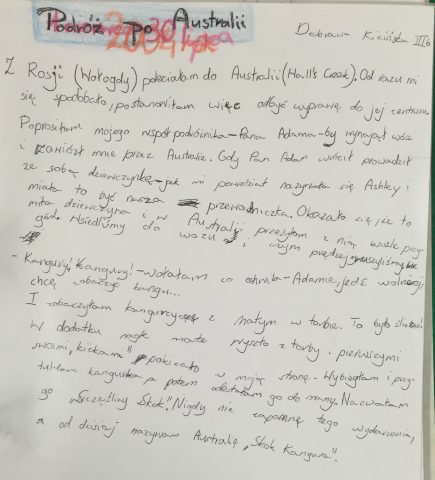 Podróż po Australii
Dobrawa Kizińska III b
Z Rosji (Wołogdy) poleciałam do Australii (Hall's Creek). Od razu mi
się spodobało, postanowiłam więc odbyć wyprawę do jej centrum.
Poprosiłam mojego współpodróżnika – Pana Adama – by wynajął wóz
i zawiózł mnie przez Australię. Gdy Pan Adam wrócił prowadził
ze sobą dziewczynkę – jak mi powiedział nazywała się Ashley i
miała to być nasza przewodniczka. Okazało się, że to
miła dziewczyna i w Australii przeżyłam z nią wiele przy-
gód. Wsiedliśmy do wozu i czym prędzej ruszyliśmy
- Kangury! Kangury! – wołałam co chwila – Adamie, jedź wolniej,
chcę zobaczyć kangu...
I zobaczyłam kangurzycę z małym w torbie. To było śliczne!
W dodatku nagle małe wyszło z torby i pierwszymi
swoimi „kickami" pokicało w moją stronę. Wybiegłam i przy-
tuliłam kangurka, a potem odesłałam go do mamy. Nazwałam
go „Szczęśliwy Skok." Nigdy nie zapomnę tego wydarzenia,
a od dzisiaj nazywam Australię „Skok Kangura".